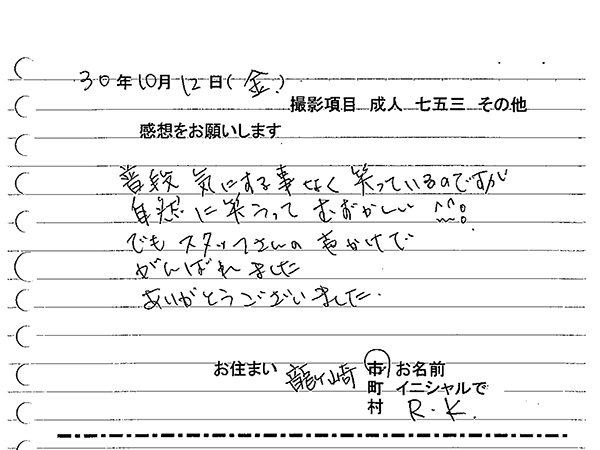 30年10月12日(金)
撮影項目 成人 七五三 その他
感想をお願いします
普段 気にする事なく笑っているのですが
自然に笑うって むずかしい ^^;
でも スタッフさんの声かけで
がんばれました
ありがとうございました.
お住まい 龍ヶ崎 市 お名前
町 イニシャルで
村 R.K.